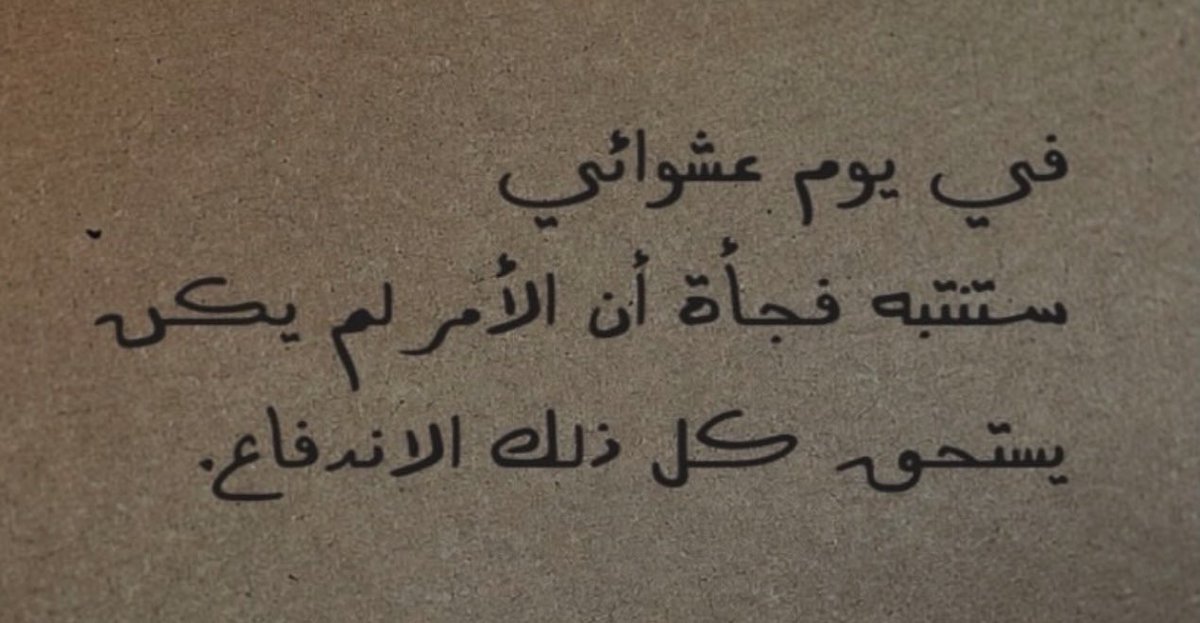 في يوم عشوائي
ستنتبه فجأة أن الأمر لم يكن
يستحق كل ذلك الاندفاع.